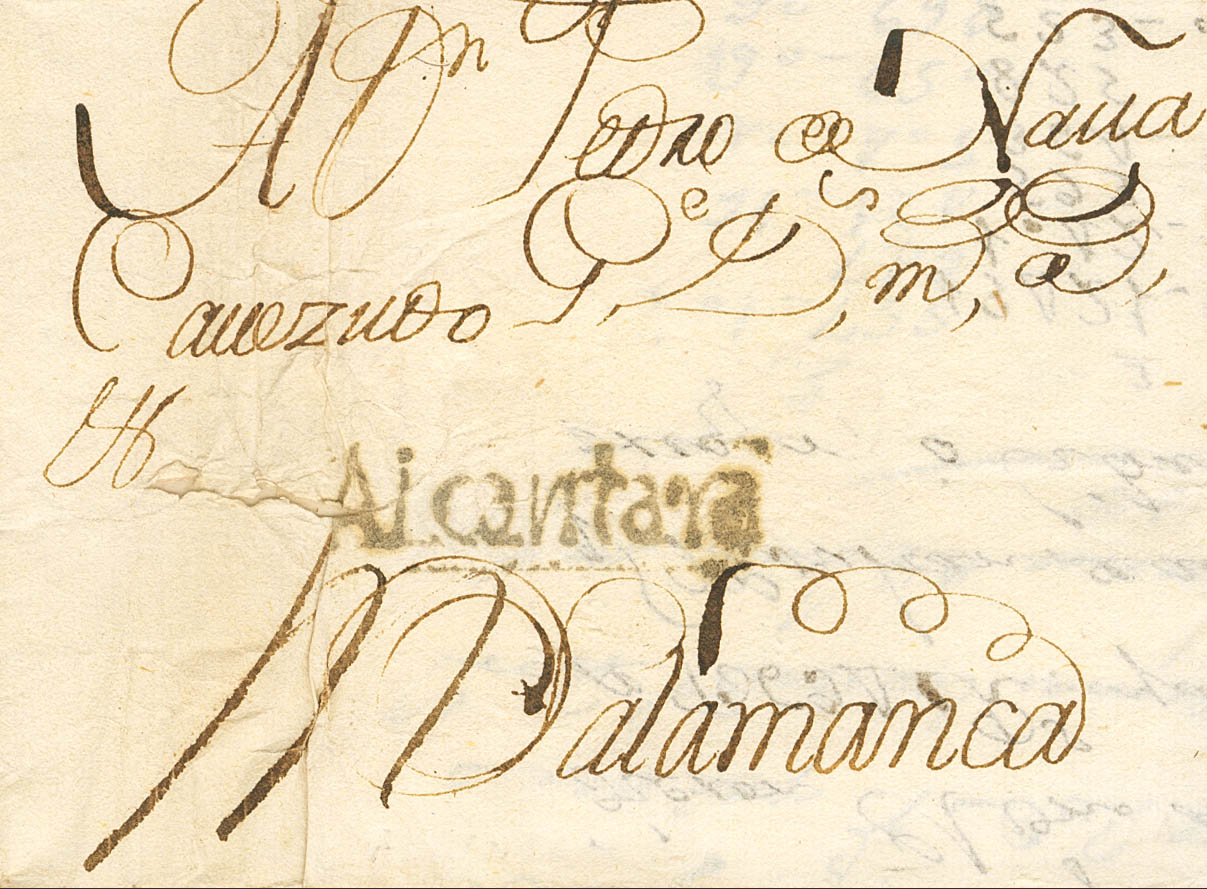 A Dn Pedro de Naua
Cauezudo q.e D.s m. a.
&
Alcantara
Salamanca